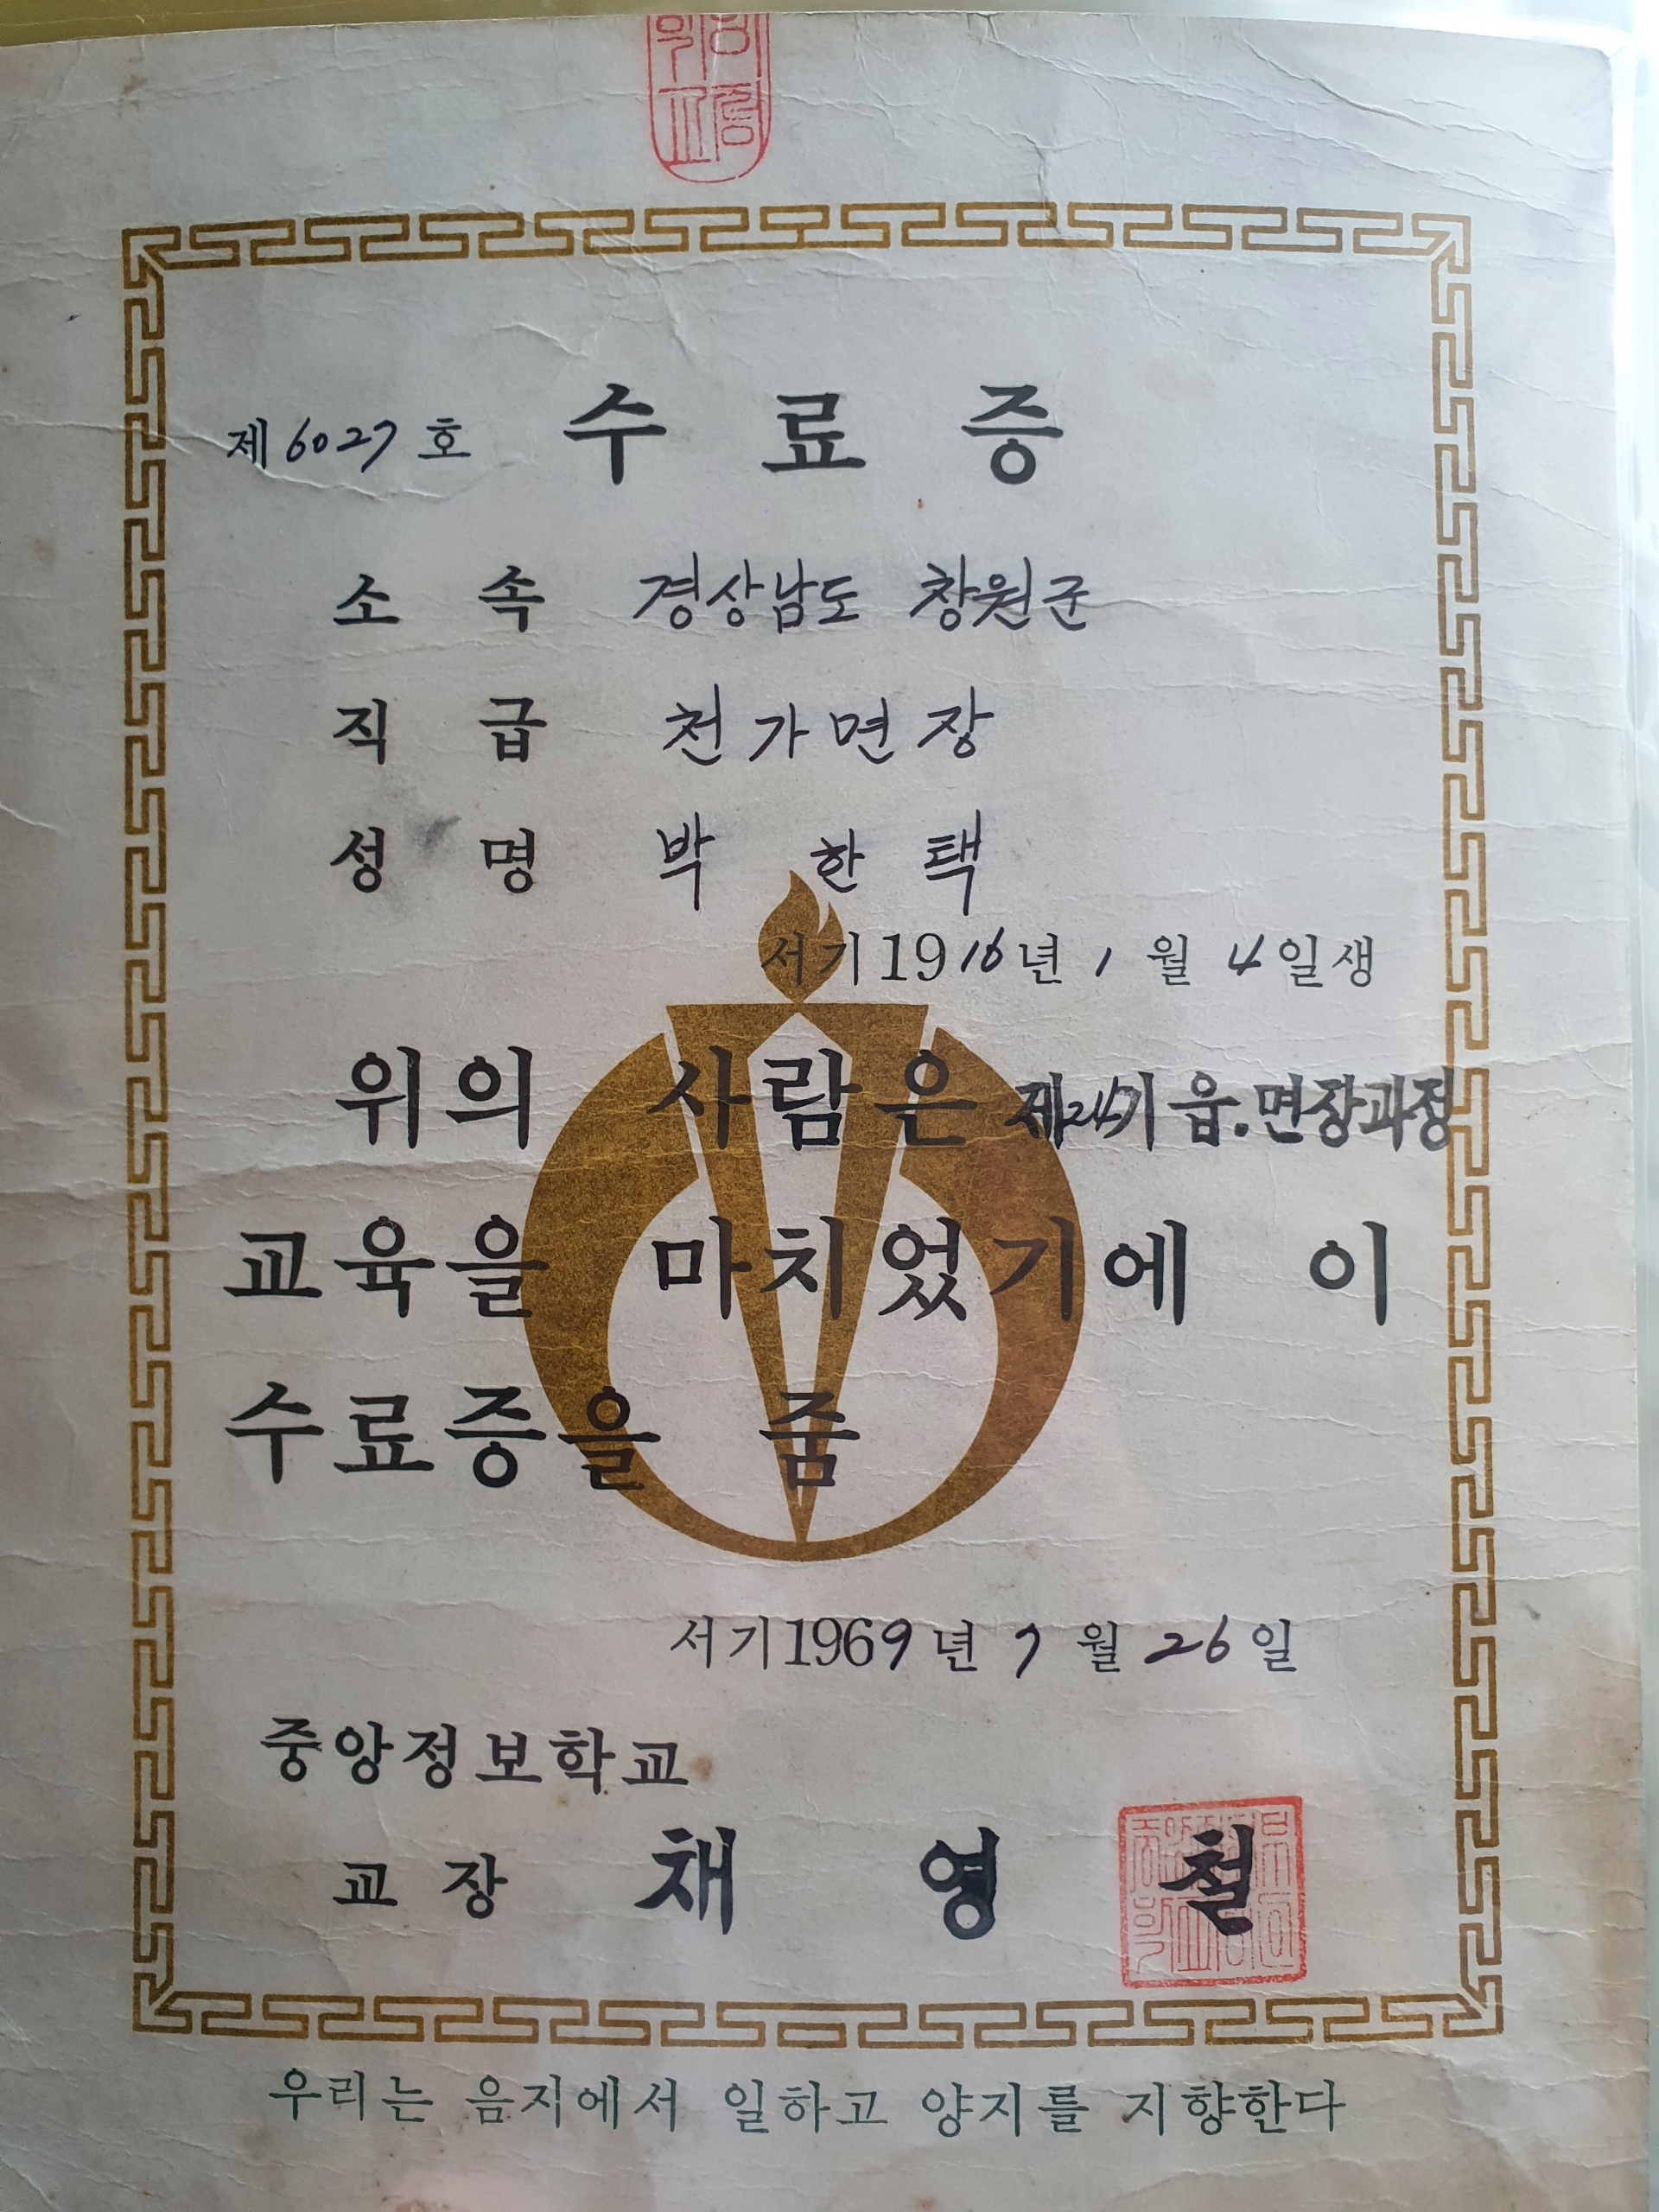 제6027호 수료증
소속 경상남도 창원군
직급 천가면장
성명 박한택
서기1916년 1월 4일생
위의 사람은 제24기 읍.면장과정
교육을 마치었기에 이
수료증을 줌
서기1969년 7월 26일
중앙정보학교
교장 채영철
우리는 음지에서 일하고 양지를 지향한다